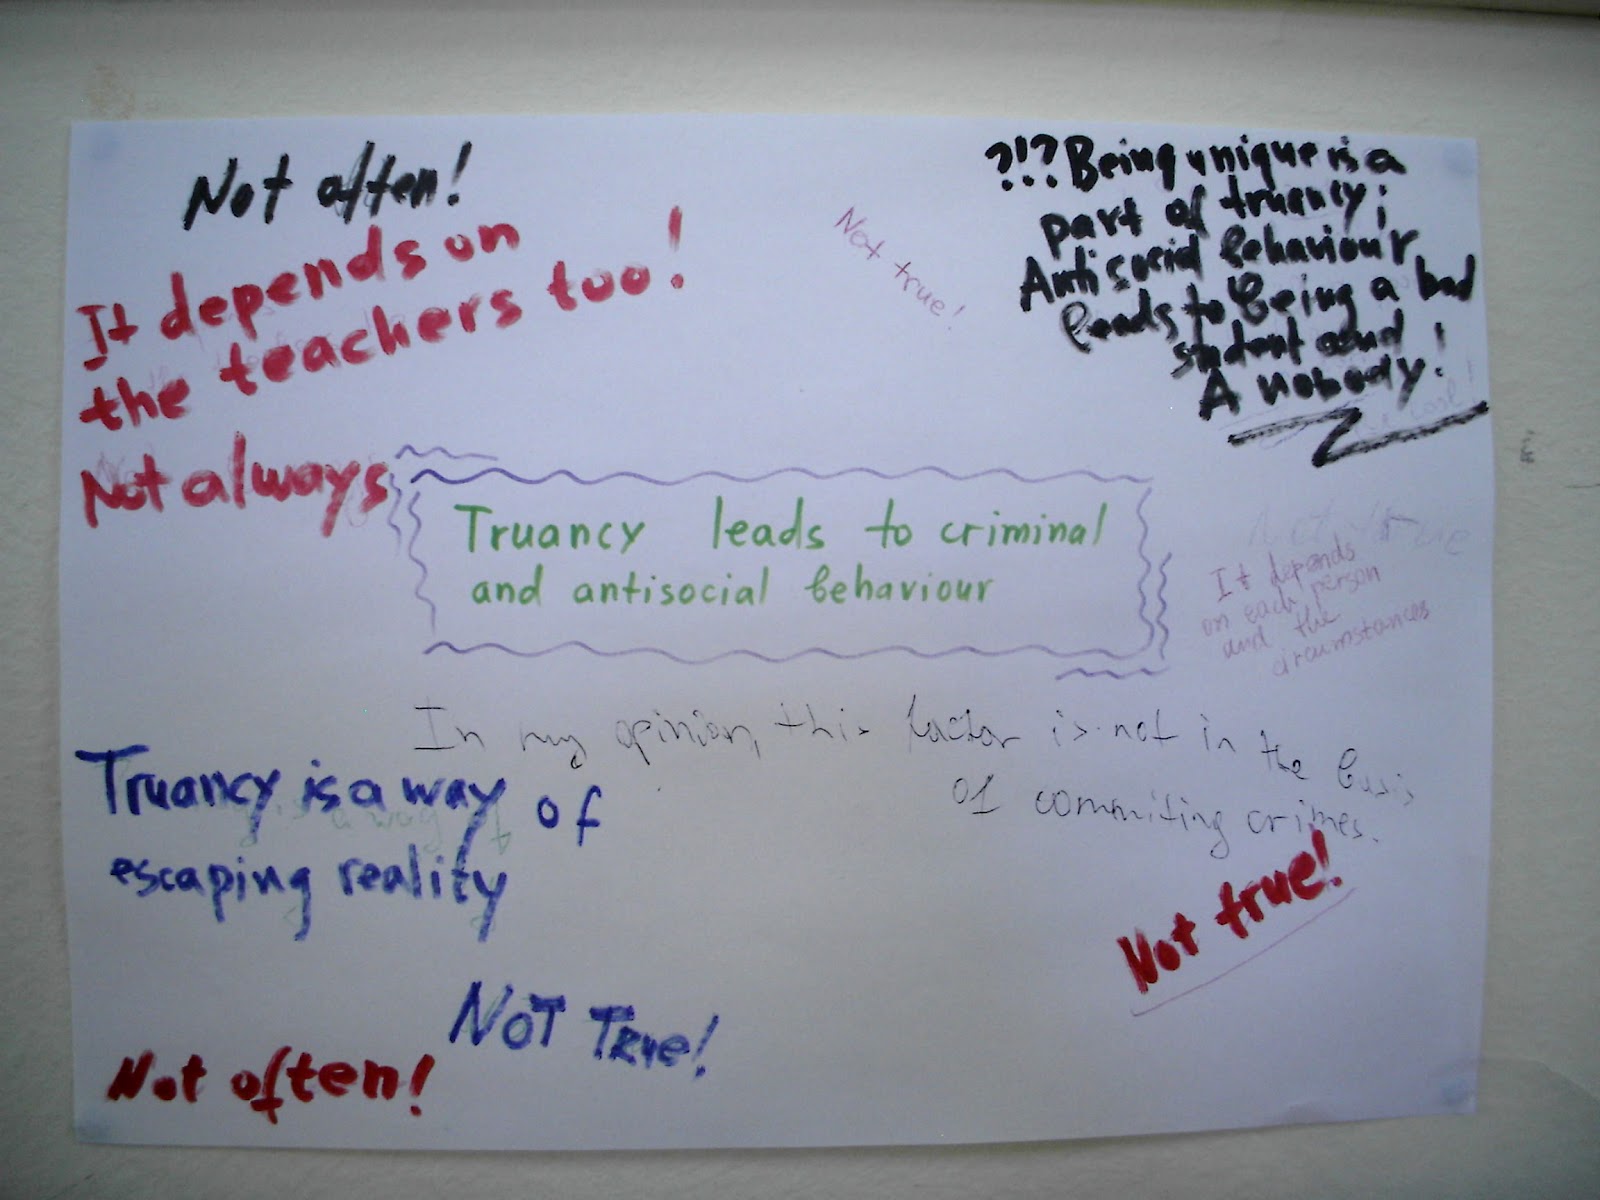 Not often!
It depends on
the teachers too!
Not always
Not true!
?!? Being unique is a
part of truancy;
Antisocial behaviour
leads to being a bad
student and
A nobody!
Truancy leads to criminal
and antisocial behaviour
Not true
It depends
on each person
and the
circumstances
In my opinion, this factor is not in the basis
of commiting crimes.
Truancy is a way of
escaping reality
Not true!
NOT TRUe!
Not often!